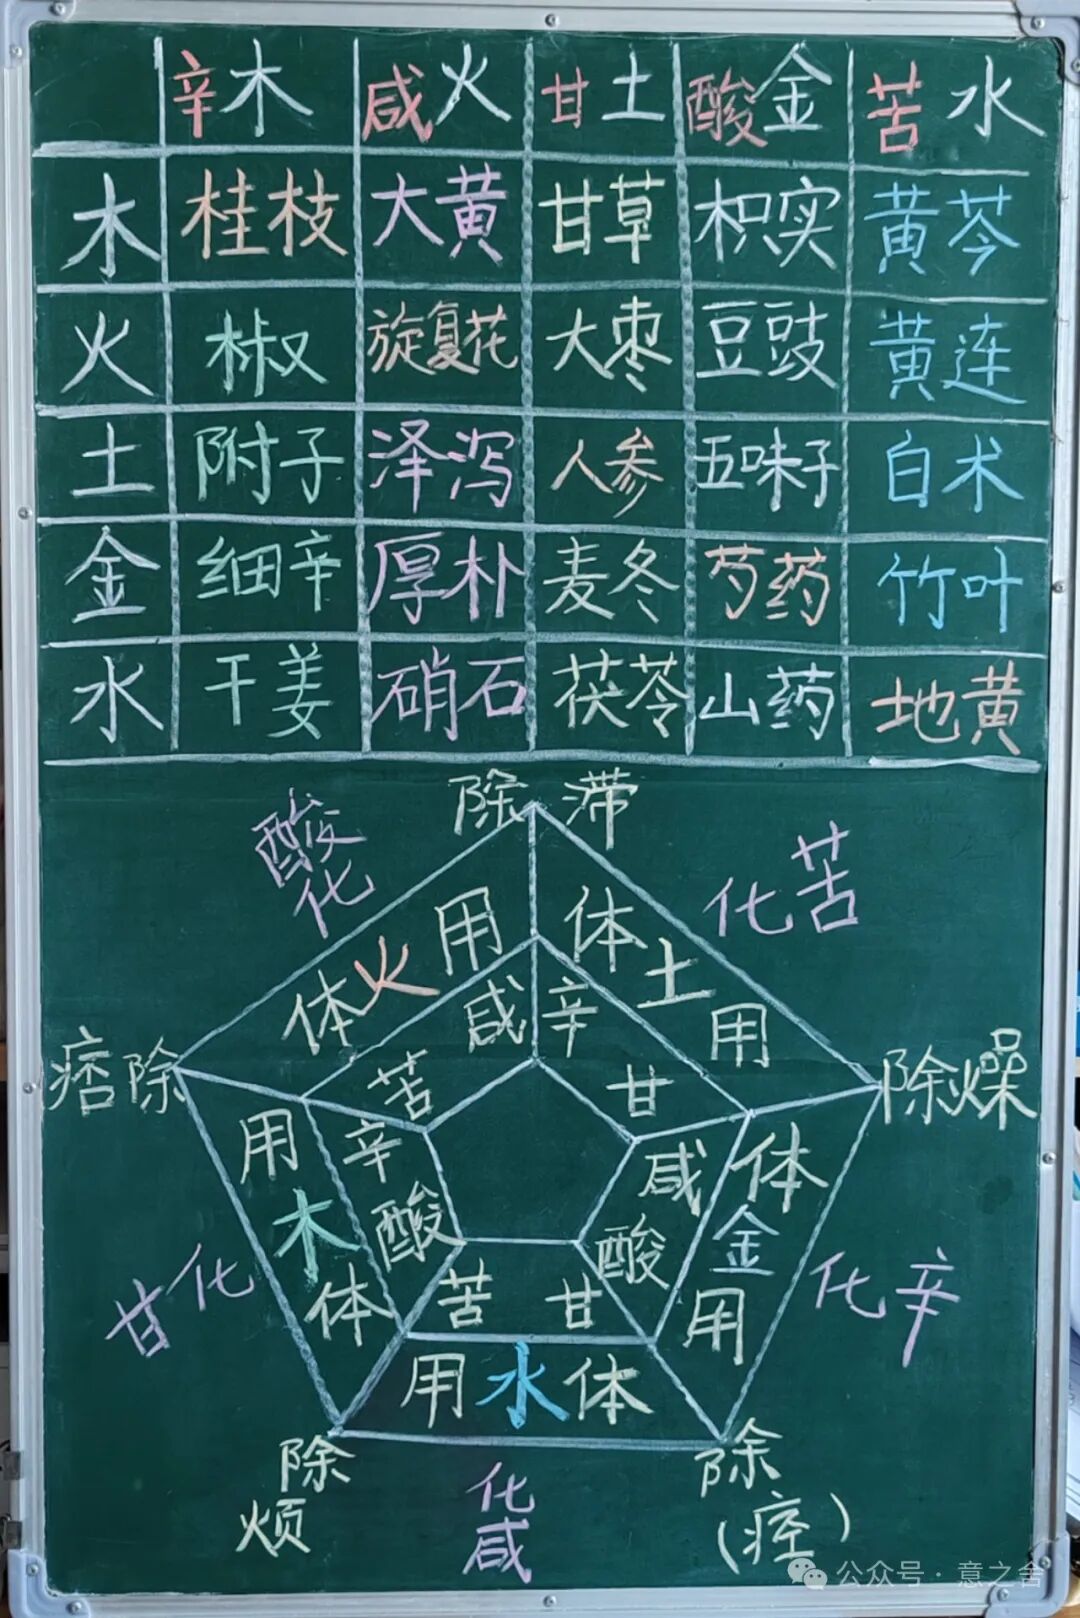 辛木 咸火 甘土 酸金 苦水
木 桂枝 大黄 甘草 枳实 黄芩
火 椒 旋复花 大枣 豆豉 黄连
土 附子 泽泻 人参 五味子 白术
金 细辛 厚朴 麦冬 芍药 竹叶
水 干姜 硝石 茯苓 山药 地黄
除滞
酸化
化苦
用 体
体火 土
咸 辛 用
痞除 苦 甘 除燥
用 辛 咸 体
木 酸 酸 金
甘化 化辛
体 苦 甘 用
用水体
除烦
化咸
除(痉)
公众号·意之舍